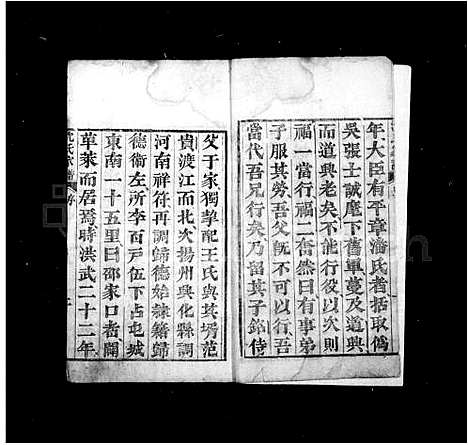 年大臣有平章潘氏者括取偽
吳張士誠麾下舊軍蔓及道興
而道興老矣不能行役以次則
福一當行福二奮然曰有事弟
子服其勞吾父既不可以行吾
當代吾兄行矣乃留其子錦侍
父于家獨挈配王氏與其壻范
貴渡江而北次揚州興化縣調
河南祥符再調歸德始隸籍歸
德衛左所李百戶伍下占屯城
東南一十五里曰邵家口者闢
草萊而居焉時洪武二十二年
沈氏家譜 序